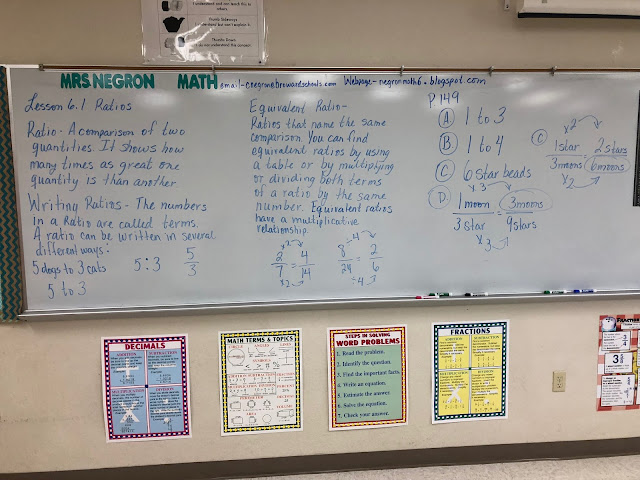 I understand and can teach this to others.
Thumb Sideways
Thumbs Down
MRS NEGRON MATH email-cnegron@browardschools.com Webpage-negronmath6.blogspot.com
Lesson 6.1 Ratios
Ratio - A comparison of two
quantities. It shows how
many times as great one
quantity is than another.
Writing Ratios - The numbers
in a Ratio are called terms.
A ratio can be written in several
different ways:
5 dogs to 3 cats 5:3 5/3
5 to 3
Equivalent Ratio-
Ratios that name the same
comparison. You can find
equivalent ratios by using
a table or by multiplying
or dividing both terms
of a ratio by the same
number. Equivalent ratios
have a multiplicative
relationship.
×2
2/7 = 4/14
×2
÷4
8/24 = 2/6
÷4
P149
A 1 to 3
B 1 to 4
C 6 star beads
D. ×3
1 moon/3 star = 3 moons/9 stars
×3
C ×2
1 star/3 moons = 2 stars/6 moons
×2
DECIMALS
ADDITION SUBTRACTION
MATH TERMS & TOPICS
ANGLES LINES
STEPS IN SOLVING
WORD PROBLEMS
1. Read the problem.
2. Identify the question.
3. Find the important facts.
4. Write an equation.
5. Estimate the answer.
6. Solve the equation.
7. Check your answer.
FRACTIONS
ADDITION SUBTRACTION